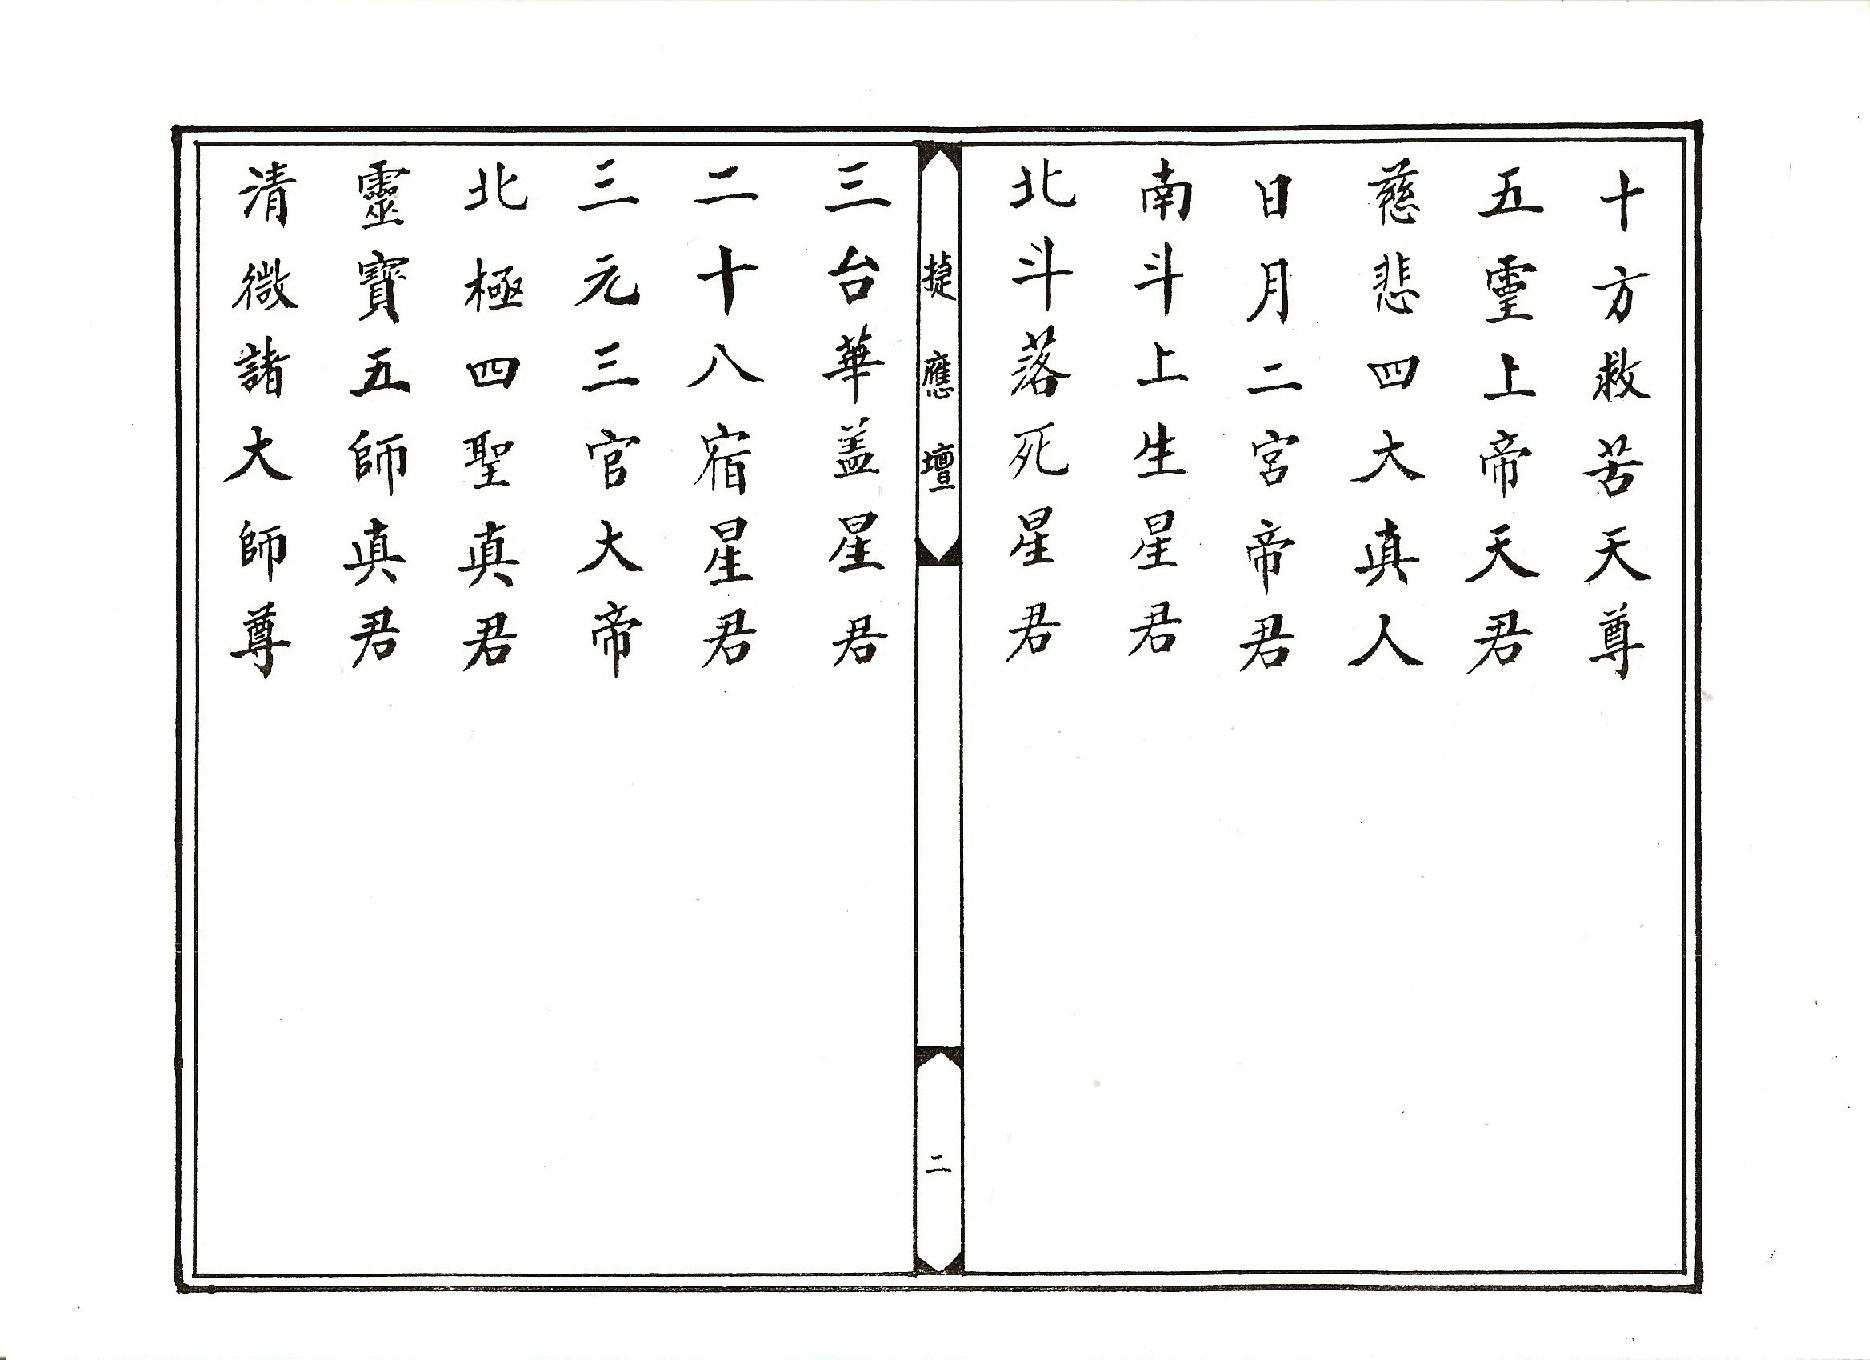 十方救苦天尊
五靈上帝天君
慈悲四大真人
日月二宮帝君
南斗上生星君
北斗落死星君
捷應壇
二
三台華盖星君
二十八宿星君
三元三官大帝
北極四聖真君
靈寶五師真君
清微諸大師尊